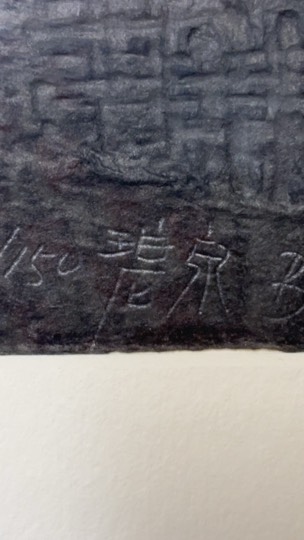 /150 碧泉 B